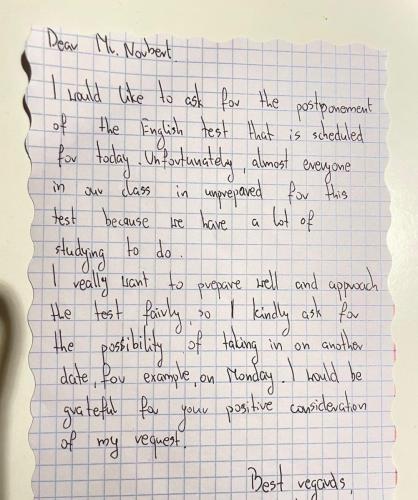 Dear Mr. Norbert.
I would like to ask for the postponement
of the English test that is scheduled
for today. Unfortunately, almost everyone
in our class in unprepared for this
test because we have a lot of
studying to do.
I really want to prepare well and approach
the test fairly, so I kindly ask for
the possibility of taking in on another
date, for example, on Monday. I would be
grateful for your positive consideration
of my request.
Best regards,